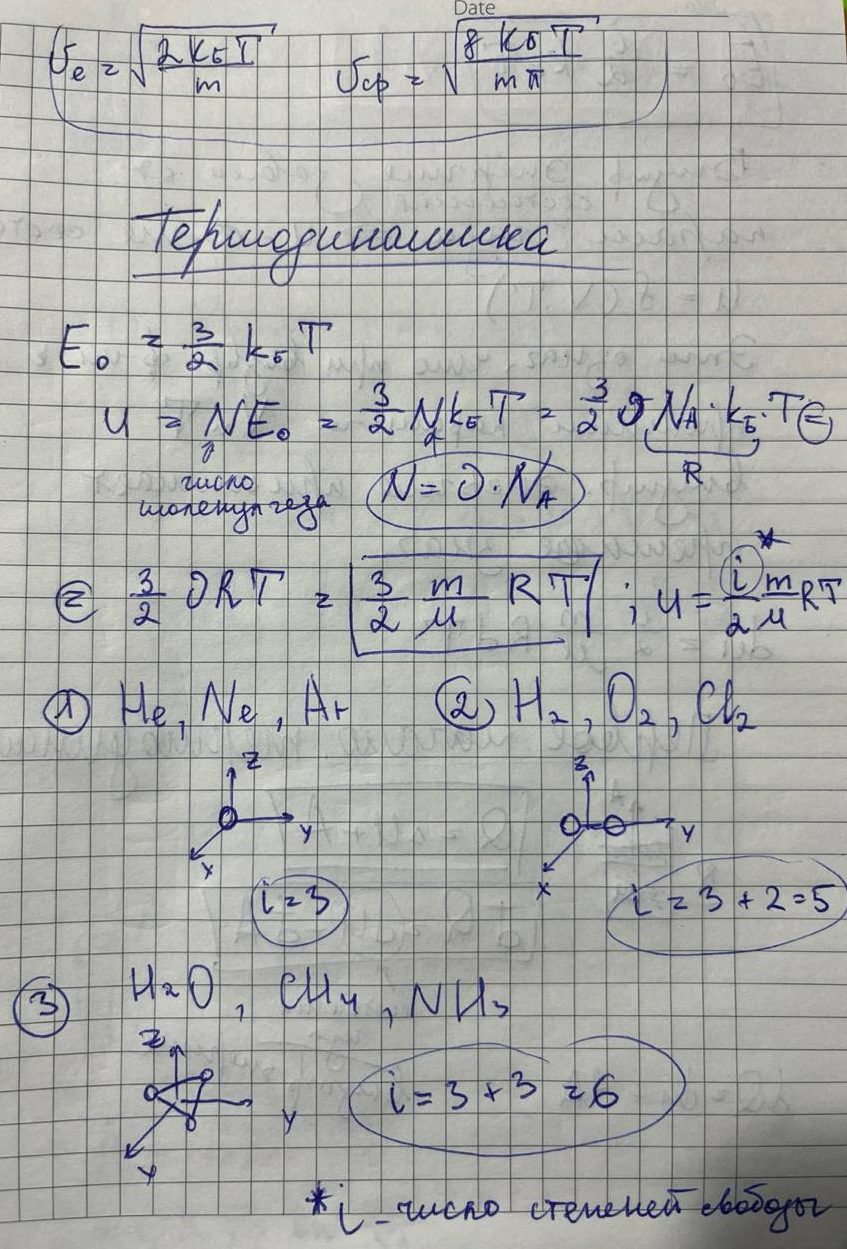 Date
υe = √(2kБT/m) υср = √(8kБT/mπ)
Термодинамика
E₀ = 3/2 kБT
U = NE₀ = 3/2 NkБT = 3/2 ϑ NA·kБ·T =
R
число
молекул газа
N = ϑ·NA
= 3/2 ϑRT = 3/2 m/μ RT ; U = i*/2 m/μ RT
① He, Ne, Ar ② H₂, O₂, Cl₂
z z
y y
x x
i = 3 i = 3 + 2 = 5
③ H₂O, CH₄, NH₃
z
y i = 3 + 3 = 6
x
*i - число степеней свободы